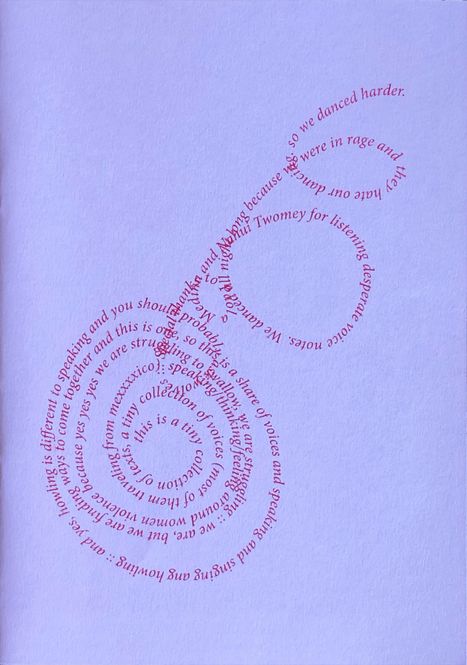 this is a tiny collection of texts, a tiny collection of voices (most of them traveling from mexxxxico) :: speaking/thinking/feeling around women violence because yes yes yes we are struggling to swallow, we are struggling :: we are, but we are finding ways to come together and this is one, so this is a share of voices and speaking and singing ang howling :: and yes, howling is different to speaking and you should probably
thanks and Nahui Twomey for listening desperate voice notes. We danced all night long because we were in rage and they hate our dancing, so we danced harder.